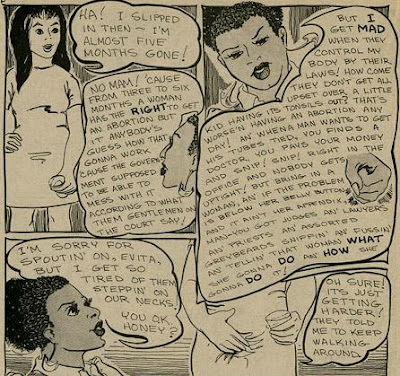 HA! I SLIPPED
IN THEN - I'M
ALMOST FIVE
MONTHS GONE!
NO MAM! 'CAUSE
FROM THREE TO SIX
MONTHS A WOMAN
HAS THE RIGHT TO GET
AN ABORTION BUT
IT ANYBODY'S
GUESS HOW THAT
GONNA WORK
'CAUSE THE GOVERN-
MENT SUPPOSED
TO BE ABLE TO
MESS WITH IT
ACCORDING TO WHAT
THEM GENTLEMEN ON
THE COURT SAY!
BUT I
GET MAD
WHEN THEY
CONTROL MY
BODY BY THEIR
LAWS! HOW COME
THEY DON'T GET ALL
UPSET OVER A LITTLE
KID HAVING ITS TONSILS OUT? THAT'S
WORSE'N HAVING AN ABORTION ANY
DAY! AN' WHEN A MAN WANTS TO GET
HIS TUBES TIED, YOU FINDS A
DOCTOR, YOU PAYS YOUR MONEY
AND SNIP! SNIP! RIGHT IN THE
OFFICE AND NOBODY GETS
UPTIGHT. BUT BEING IN A
WOMAN, AN' IF THE PROBLEM
IS BELOW HER BELLY BUTTON
AND IT AIN'T HER APPENDIX,
MAN! YOU GOT JUDGES AN' LAWYERS
AN' PRIESTS AN' ASSORTED
GREYBEARDS SNIFFIN' AN' FUSSIN'
AN' TELLIN' THAT WOMAN WHAT
SHE GONNA DO AN' HOW SHE
GONNA DO IT!
I'M SORRY FOR
SPOUTIN' ON, EVITA,
BUT I GET SO
TIRED OF THEM
STEPPIN' ON
OUR NECKS.
YOU OK
HONEY?
OH SURE!
ITS JUST
GETTING
HARDER!
THEY TOLD
ME TO KEEP
WALKING
AROUND.